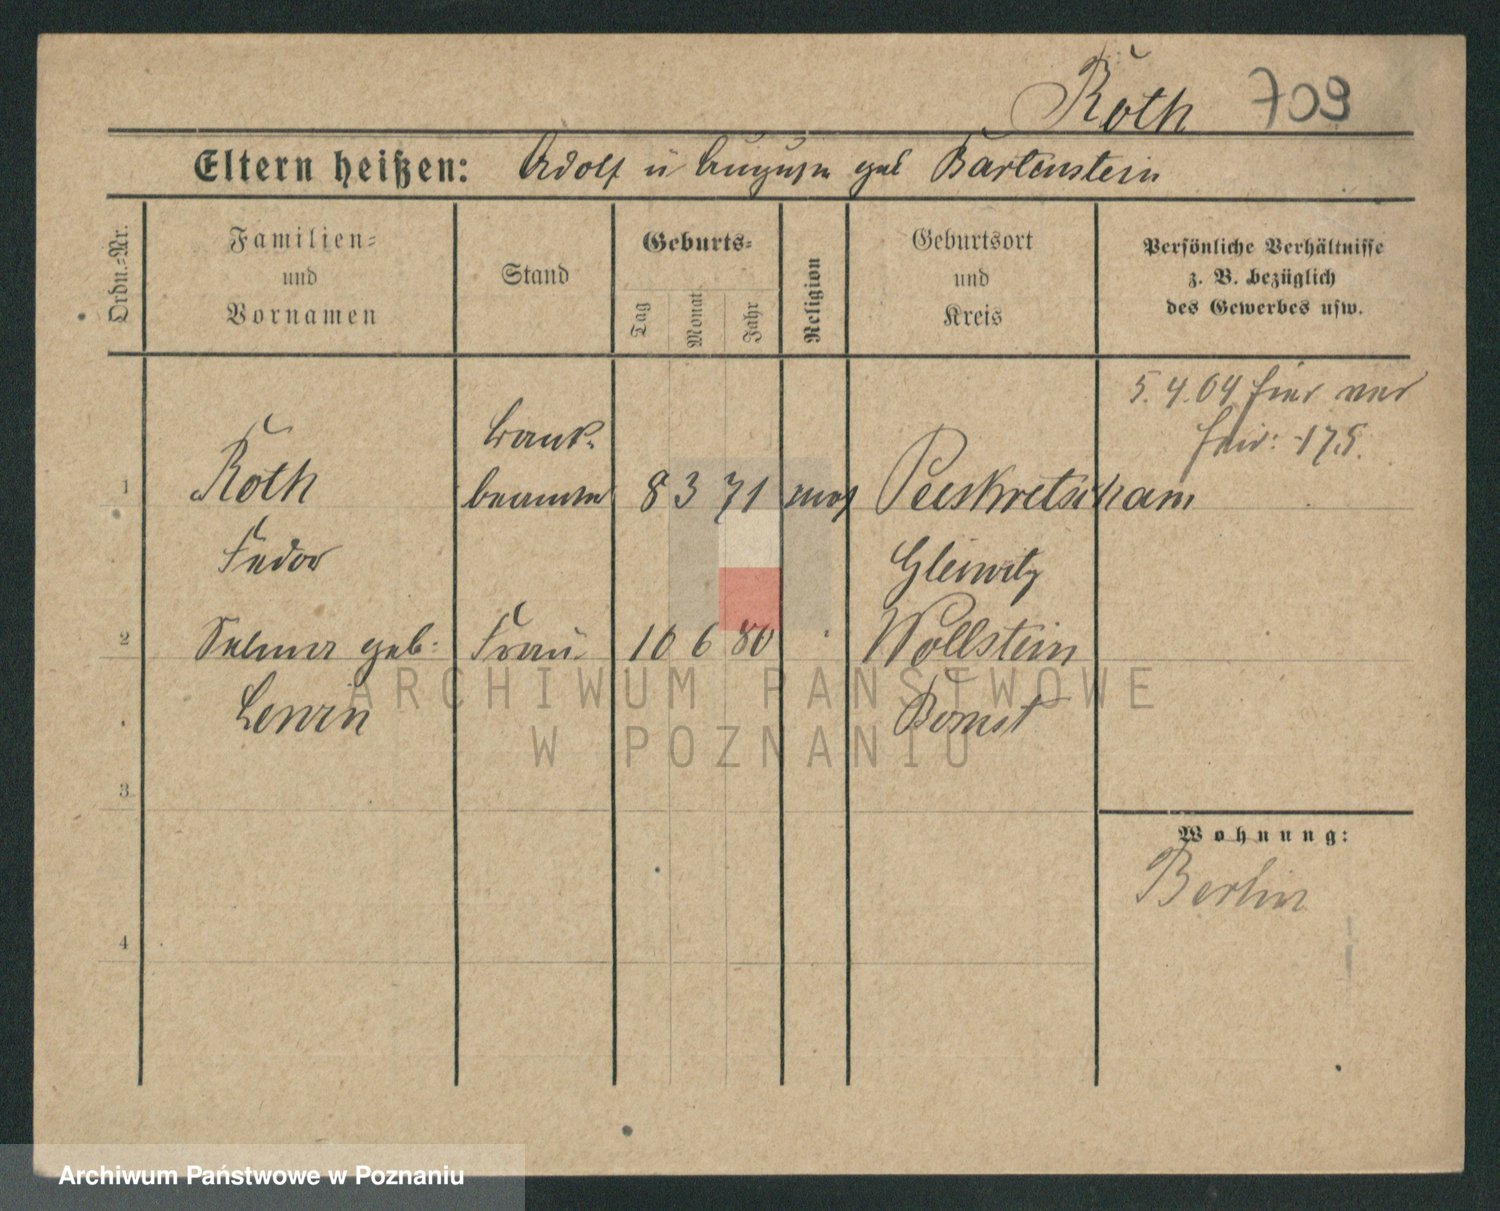 Roth 709
Eltern heißen: Adolf u Auguste geb Bartenstein
Ordn.-Nr.
Familien-
und
Vornamen
Stand
Geburts-
Tag
Monat
Jahr
Religion
Geburtsort
und
Kreis
Persönliche Verhältnisse
z. B. bezüglich
des Gewerbes usw.
5.4.04 hier
175.
Bank-
1 Roth beamter 8 3 71 mos Peiskretscham
Fedor Gleiwitz
2 Selma geb: Frau 10 6 80 Wollstein
Lewin Bomst
3
4
Wohnung:
Berlin
ARCHIWUM PAŃSTWOWE
W POZNANIU
Archiwum Państwowe w Poznaniu